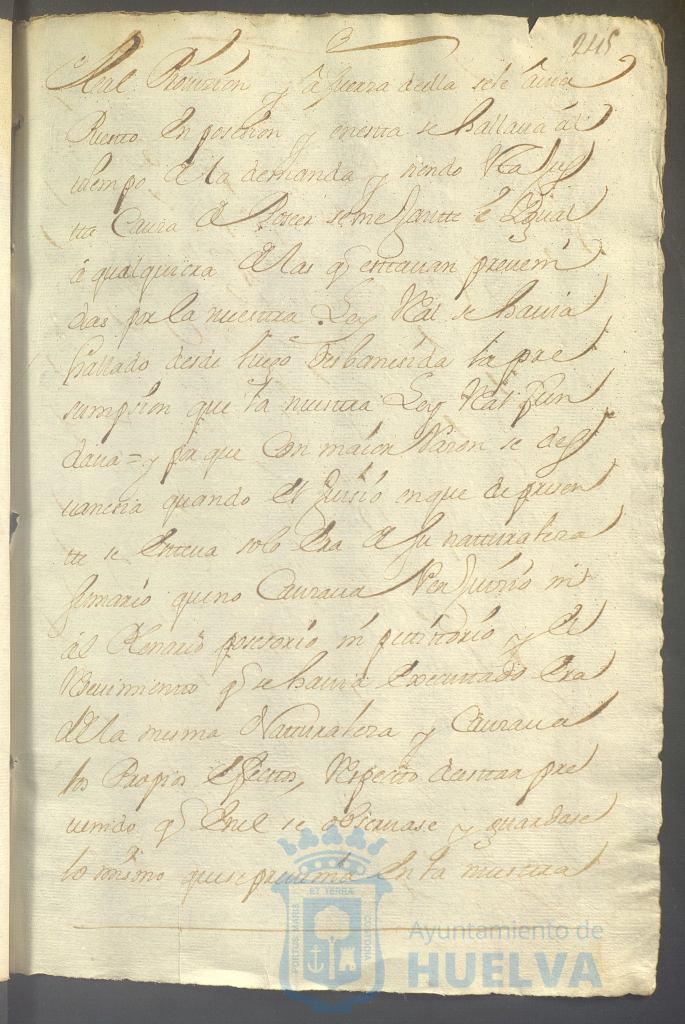 245
Real Provission y â fuerza della sele havia
Puesto en posesion y en esta se hallava ál
tiempo de la demanda y siendo Rª jus
tta Causa de Poseer semejantte è Ygual
à qualquiera de las q estavan preveni
das por la nuestra Ley Real se havia
hallado desde luego desbanesida la pre
sumpsion que la nuestra Ley Real fun
dava = y por que con maior Rason se des
vanesia quando el Juisio en que de presen
tte se estava solo Era de su natturaleza
sumario que no Causava Perjuisio ni
ál Plenario posesorio ni petittorio y el
Resevimiento q se havia Executtado Era
de la misma Natturaleza y Causava
los Propios Efectos, Respecto de estar pre
venido q En el se observase y guardase
lo mismo que se prevenia En la nuestra
PORTUS MARIS
ET TERRAE
CUSTODIA
Ayuntamiento de
HUELVA